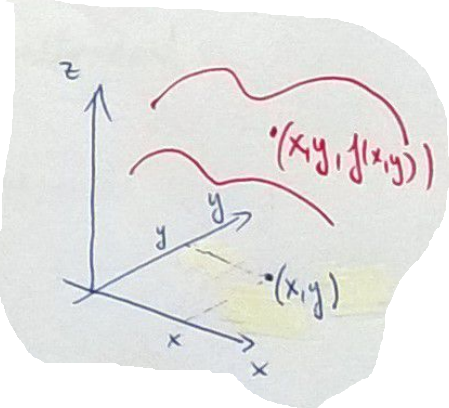 z
(x,y,f(x,y))
y
y
(x,y)
x
x